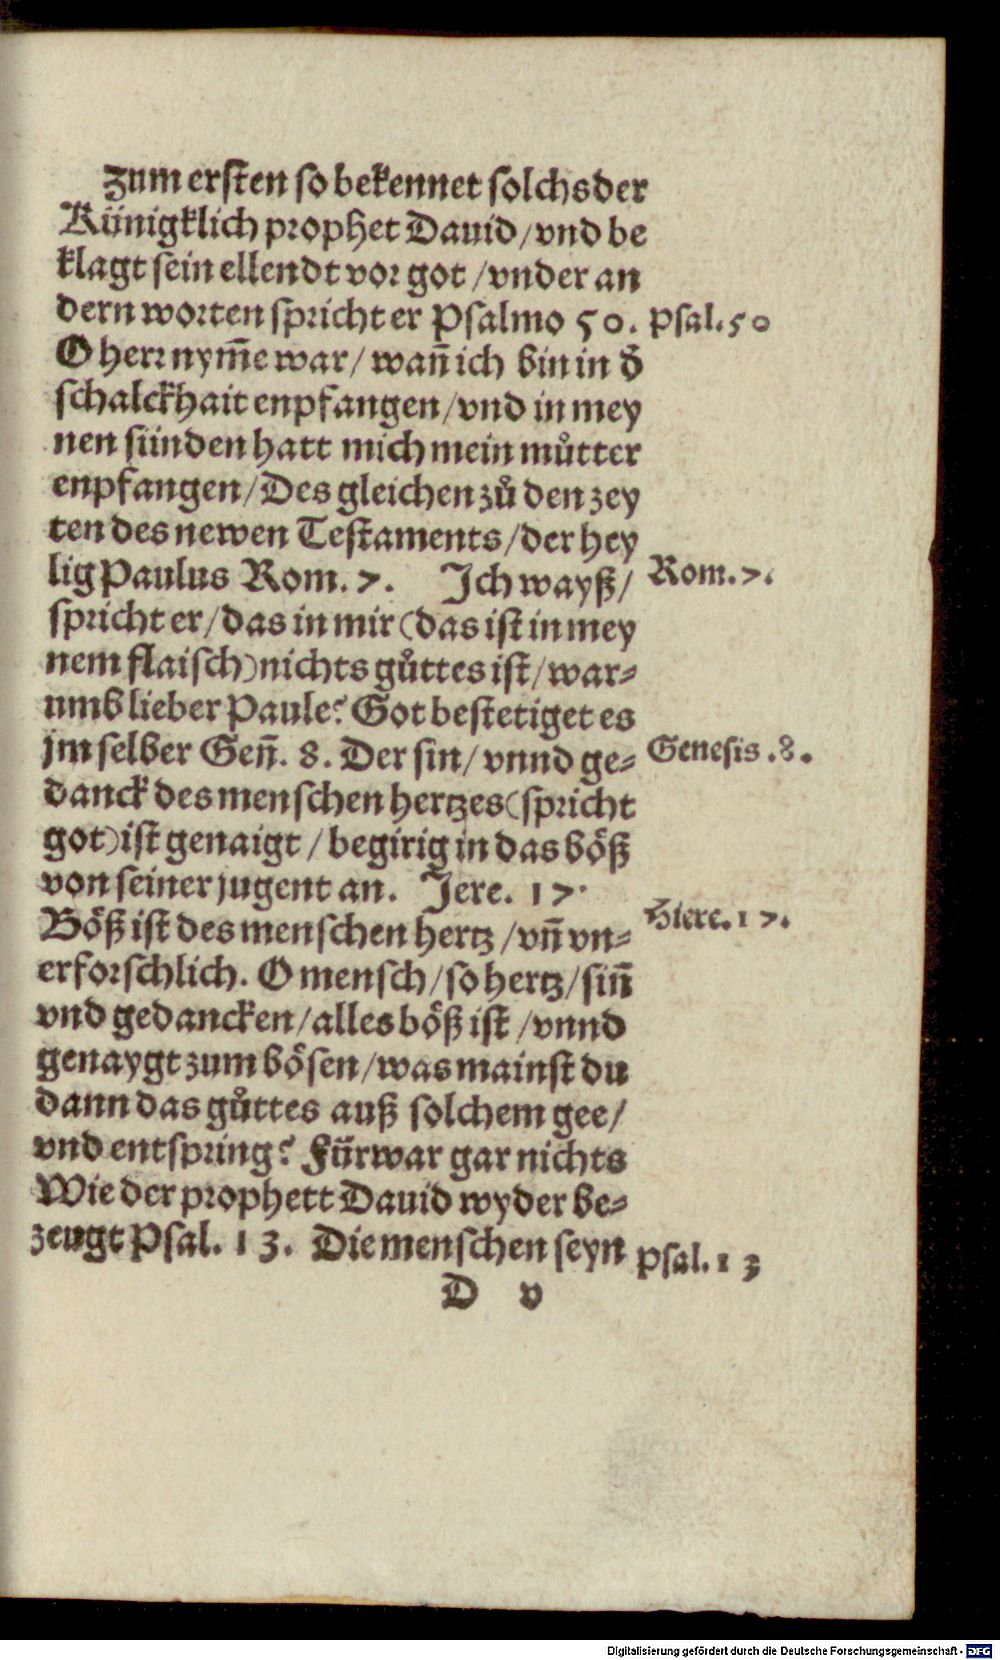 Zum ersten so bekennet solchs der
Künigklich prophet Dauid/ vnd be
klagt sein ellendt vor got / vnder an
dern worten spricht er Psalmo 50. Psal. 50
O herr nym̄e war/ wan̄ ich bin in d̄
schalckhait enpfangen/ vnd in mey
nen sünden hatt mich mein můtter
enpfangen/ Des gleichen zů den zey
ten des newen Testaments/ der hey
lig Paulus Rom. 7. Ich wayß/ Rom. 7.
spricht er/ das in mir (das ist in mey
nem flaisch) nichts gůttes ist/ war⸗
umb lieber Paule? Got bestetiget es
jm selber Gen̄. 8. Der sin/ vnnd ge⸗ Genesis .8.
danck des menschen hertzes (spricht
got) ist genaigt / begirig in das böß
von seiner jugent an. Jere. 17.
Böß ist des menschen hertz / vn̄ vn⸗ Hiere. 17.
erforschlich. O mensch/ so hertz/ sin̄
vnd gedancken/ alles böß ist / vnnd
genaygt zum bösen/ was mainst du
dann das gůttes auß solchem gee/
vnd entspring? Fürwar gar nichts
Wie der prophett Dauid wyder be⸗
zeugt Psal. 13. Die menschen seyn Psal. 13
D v
Digitalisierung gefördert durch die Deutsche Forschungsgemeinschaft - DFG